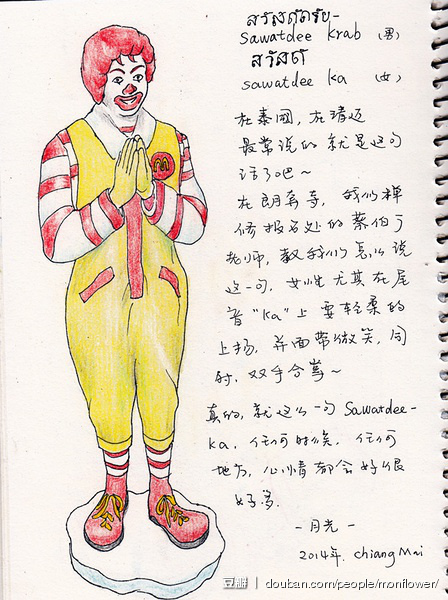 สวัสดีครับ-
Sawatdee krab (男)
สวัสดี
sawatdee ka (女)
在泰国,在清迈
最常说的就是这句
话了吧~
在朗奔寺,我们禅
修报名处的蔡伯
老师,教我们怎么说
这一句,女性尤其在尾
音"ka"上要轻柔的
上扬,并面带微笑,同
时,双手合掌~
真的,就这么一句 Sawatdee-
ka,任何时候,任何
地方,心情都会好很
好多.
-月光-
2014年. Chiang Mai
豆瓣 | douban.com/people/monflower/